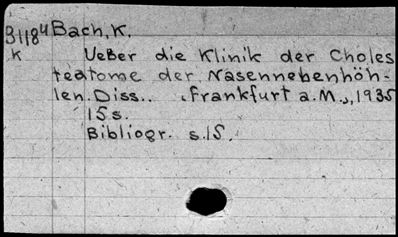 B1184 Bach, K.
K Ueber die Klinik der Choles
teatome der Nasennebenhöh-
len. Diss.. Frankfurt a.M., 1935
15s.
Bibliogr. s.15.